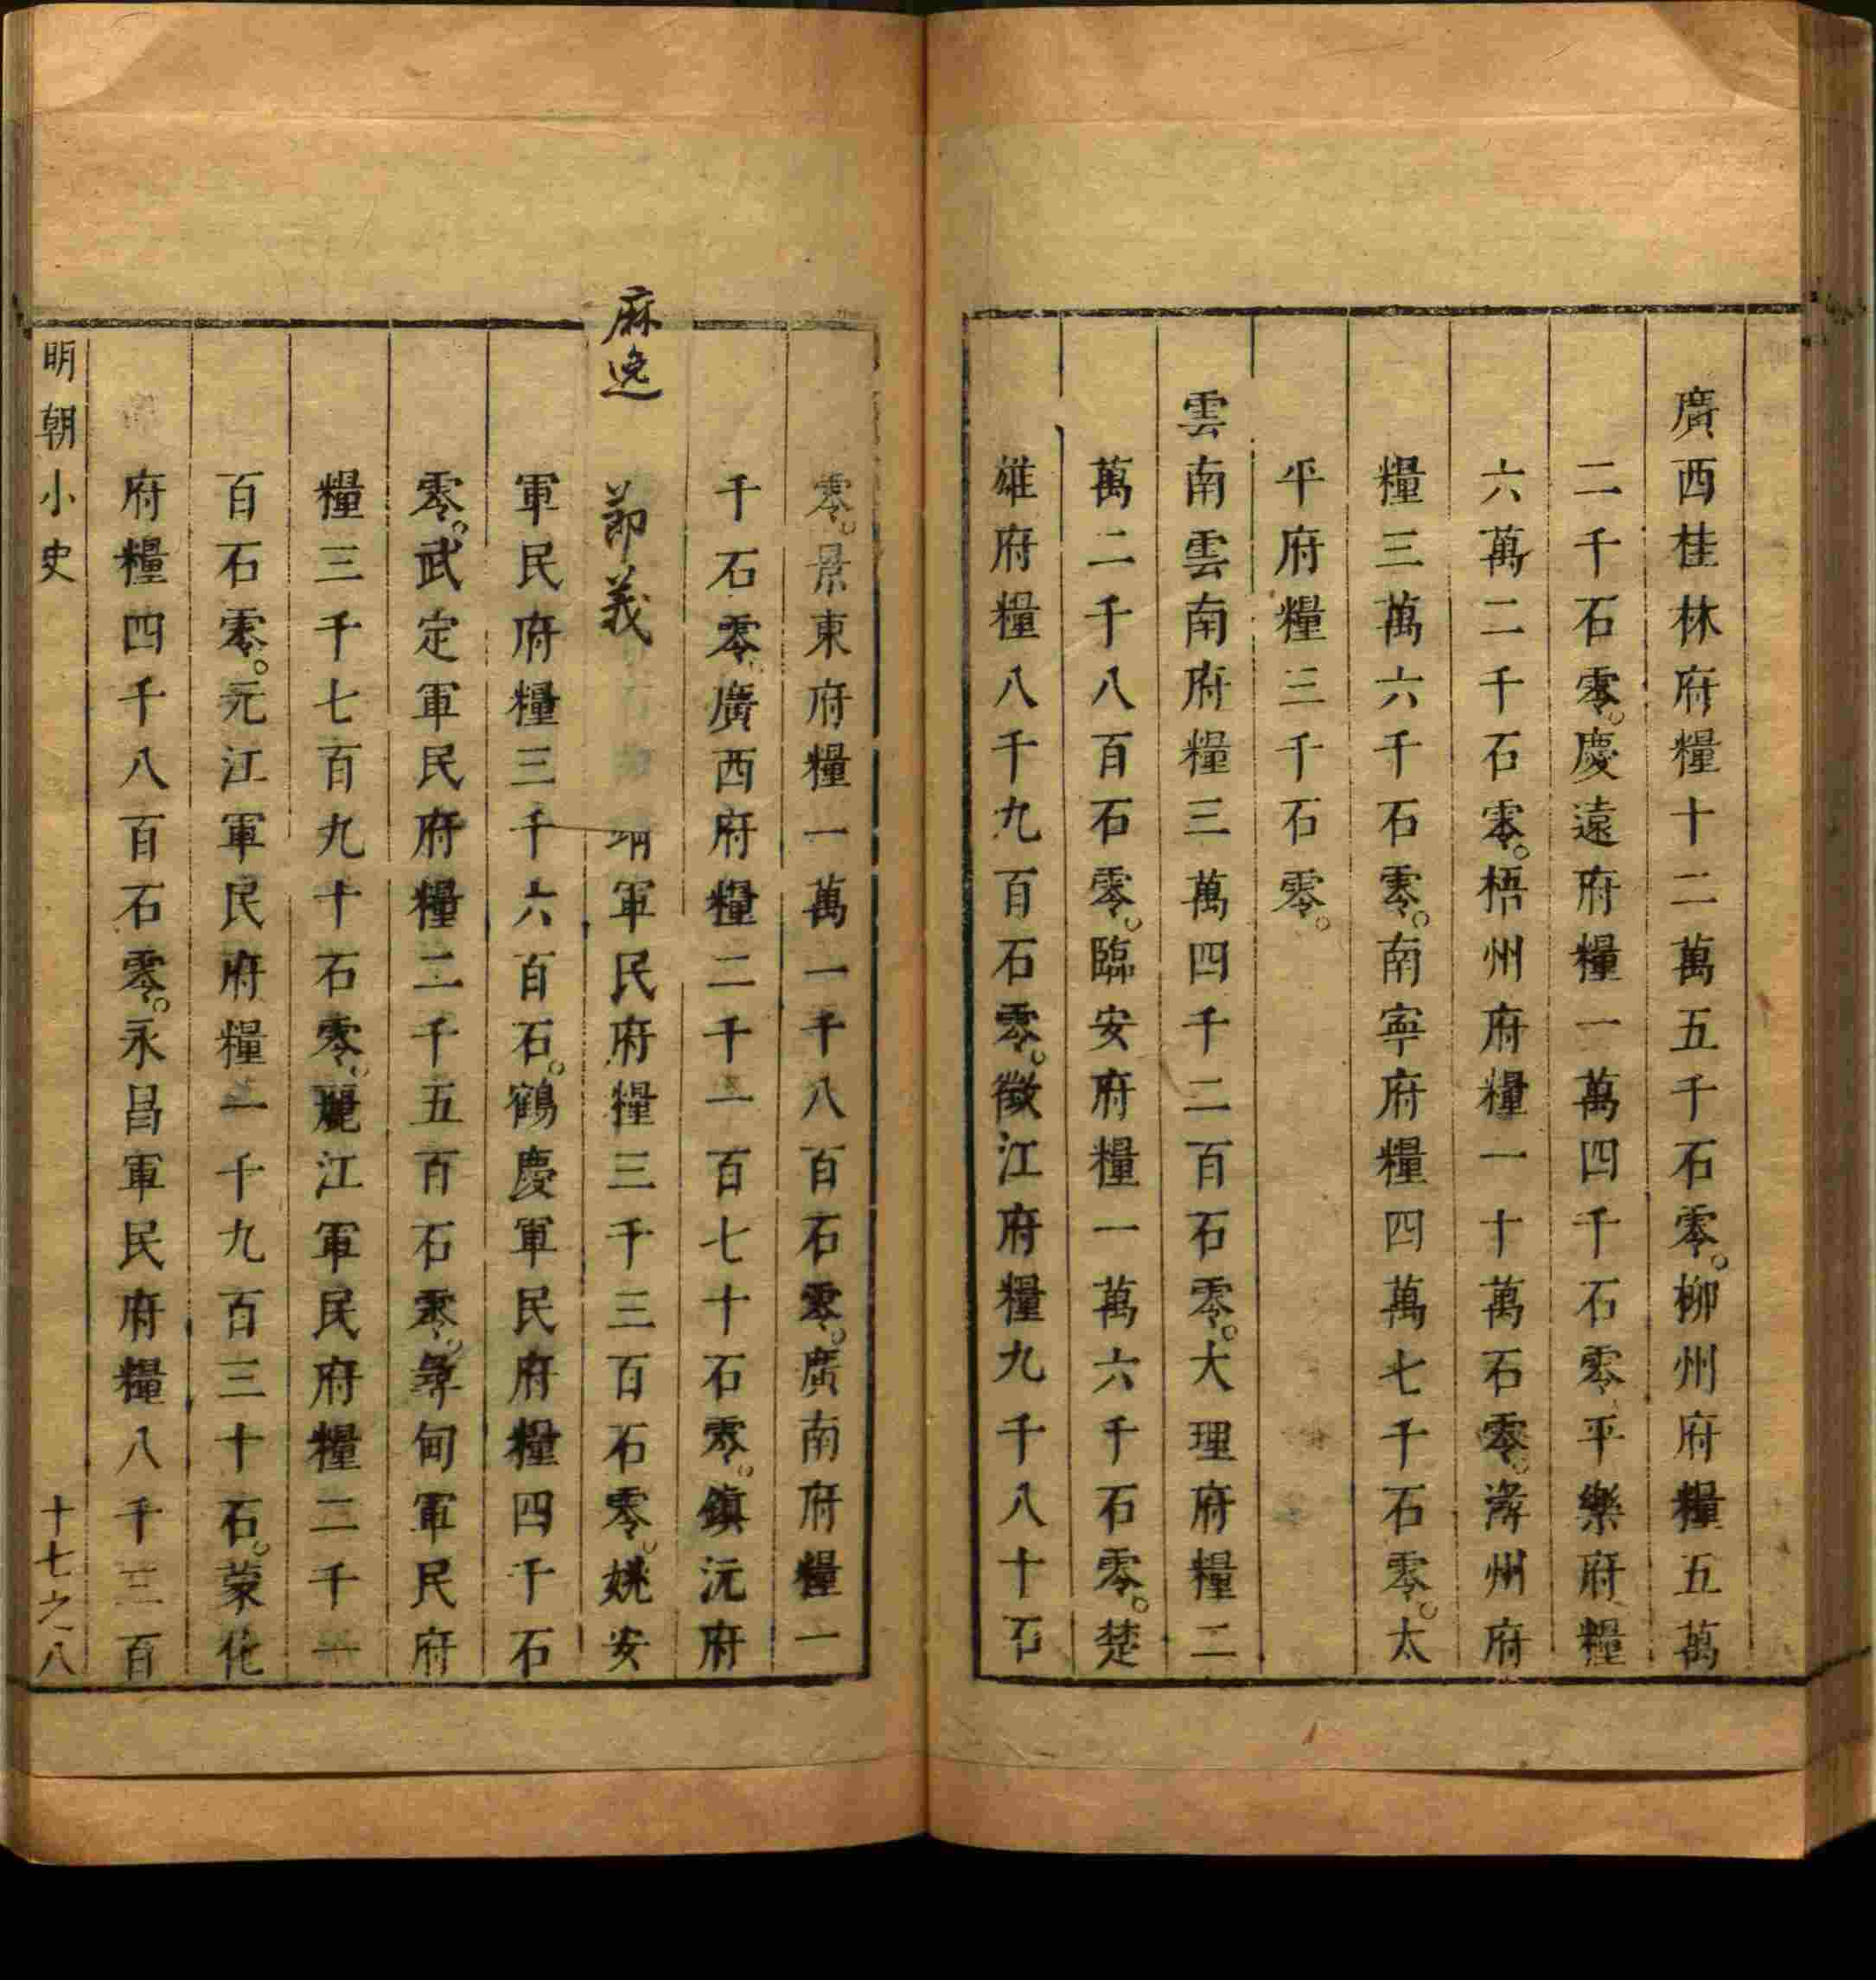 廣西桂林府糧十二萬五千石零。柳州府糧五萬
二千石零。慶遠府糧一萬四千石零。平樂府糧
六萬二千石零。梧州府糧一十萬石零。潯州府
糧三萬六千石零。南寧府糧四萬七千石零。太
平府糧三千石零。
雲南雲南府糧三萬四千二百石零。大理府糧二
萬二千八百石零。臨安府糧一萬六千石零。楚
雄府糧八千九百石零。徵江府糧九千八十石
零。景東府糧一萬一千八百石零。廣南府糧一
千石零。廣西府糧二千一百七十石零。鎮沅府
麻逸 節義 靖軍民府糧三千三百石零。姚安
軍民府糧三千六百石。鶴慶軍民府糧四千石
零。武定軍民府糧二千五百石零。尋甸軍民府
糧三千七百九十石零。麗江軍民府糧二千一
百石零。元江軍民府糧一千九百三十石。蒙化
府糧四千八百石零。永昌軍民府糧八千三百
明朝小史
十七之八